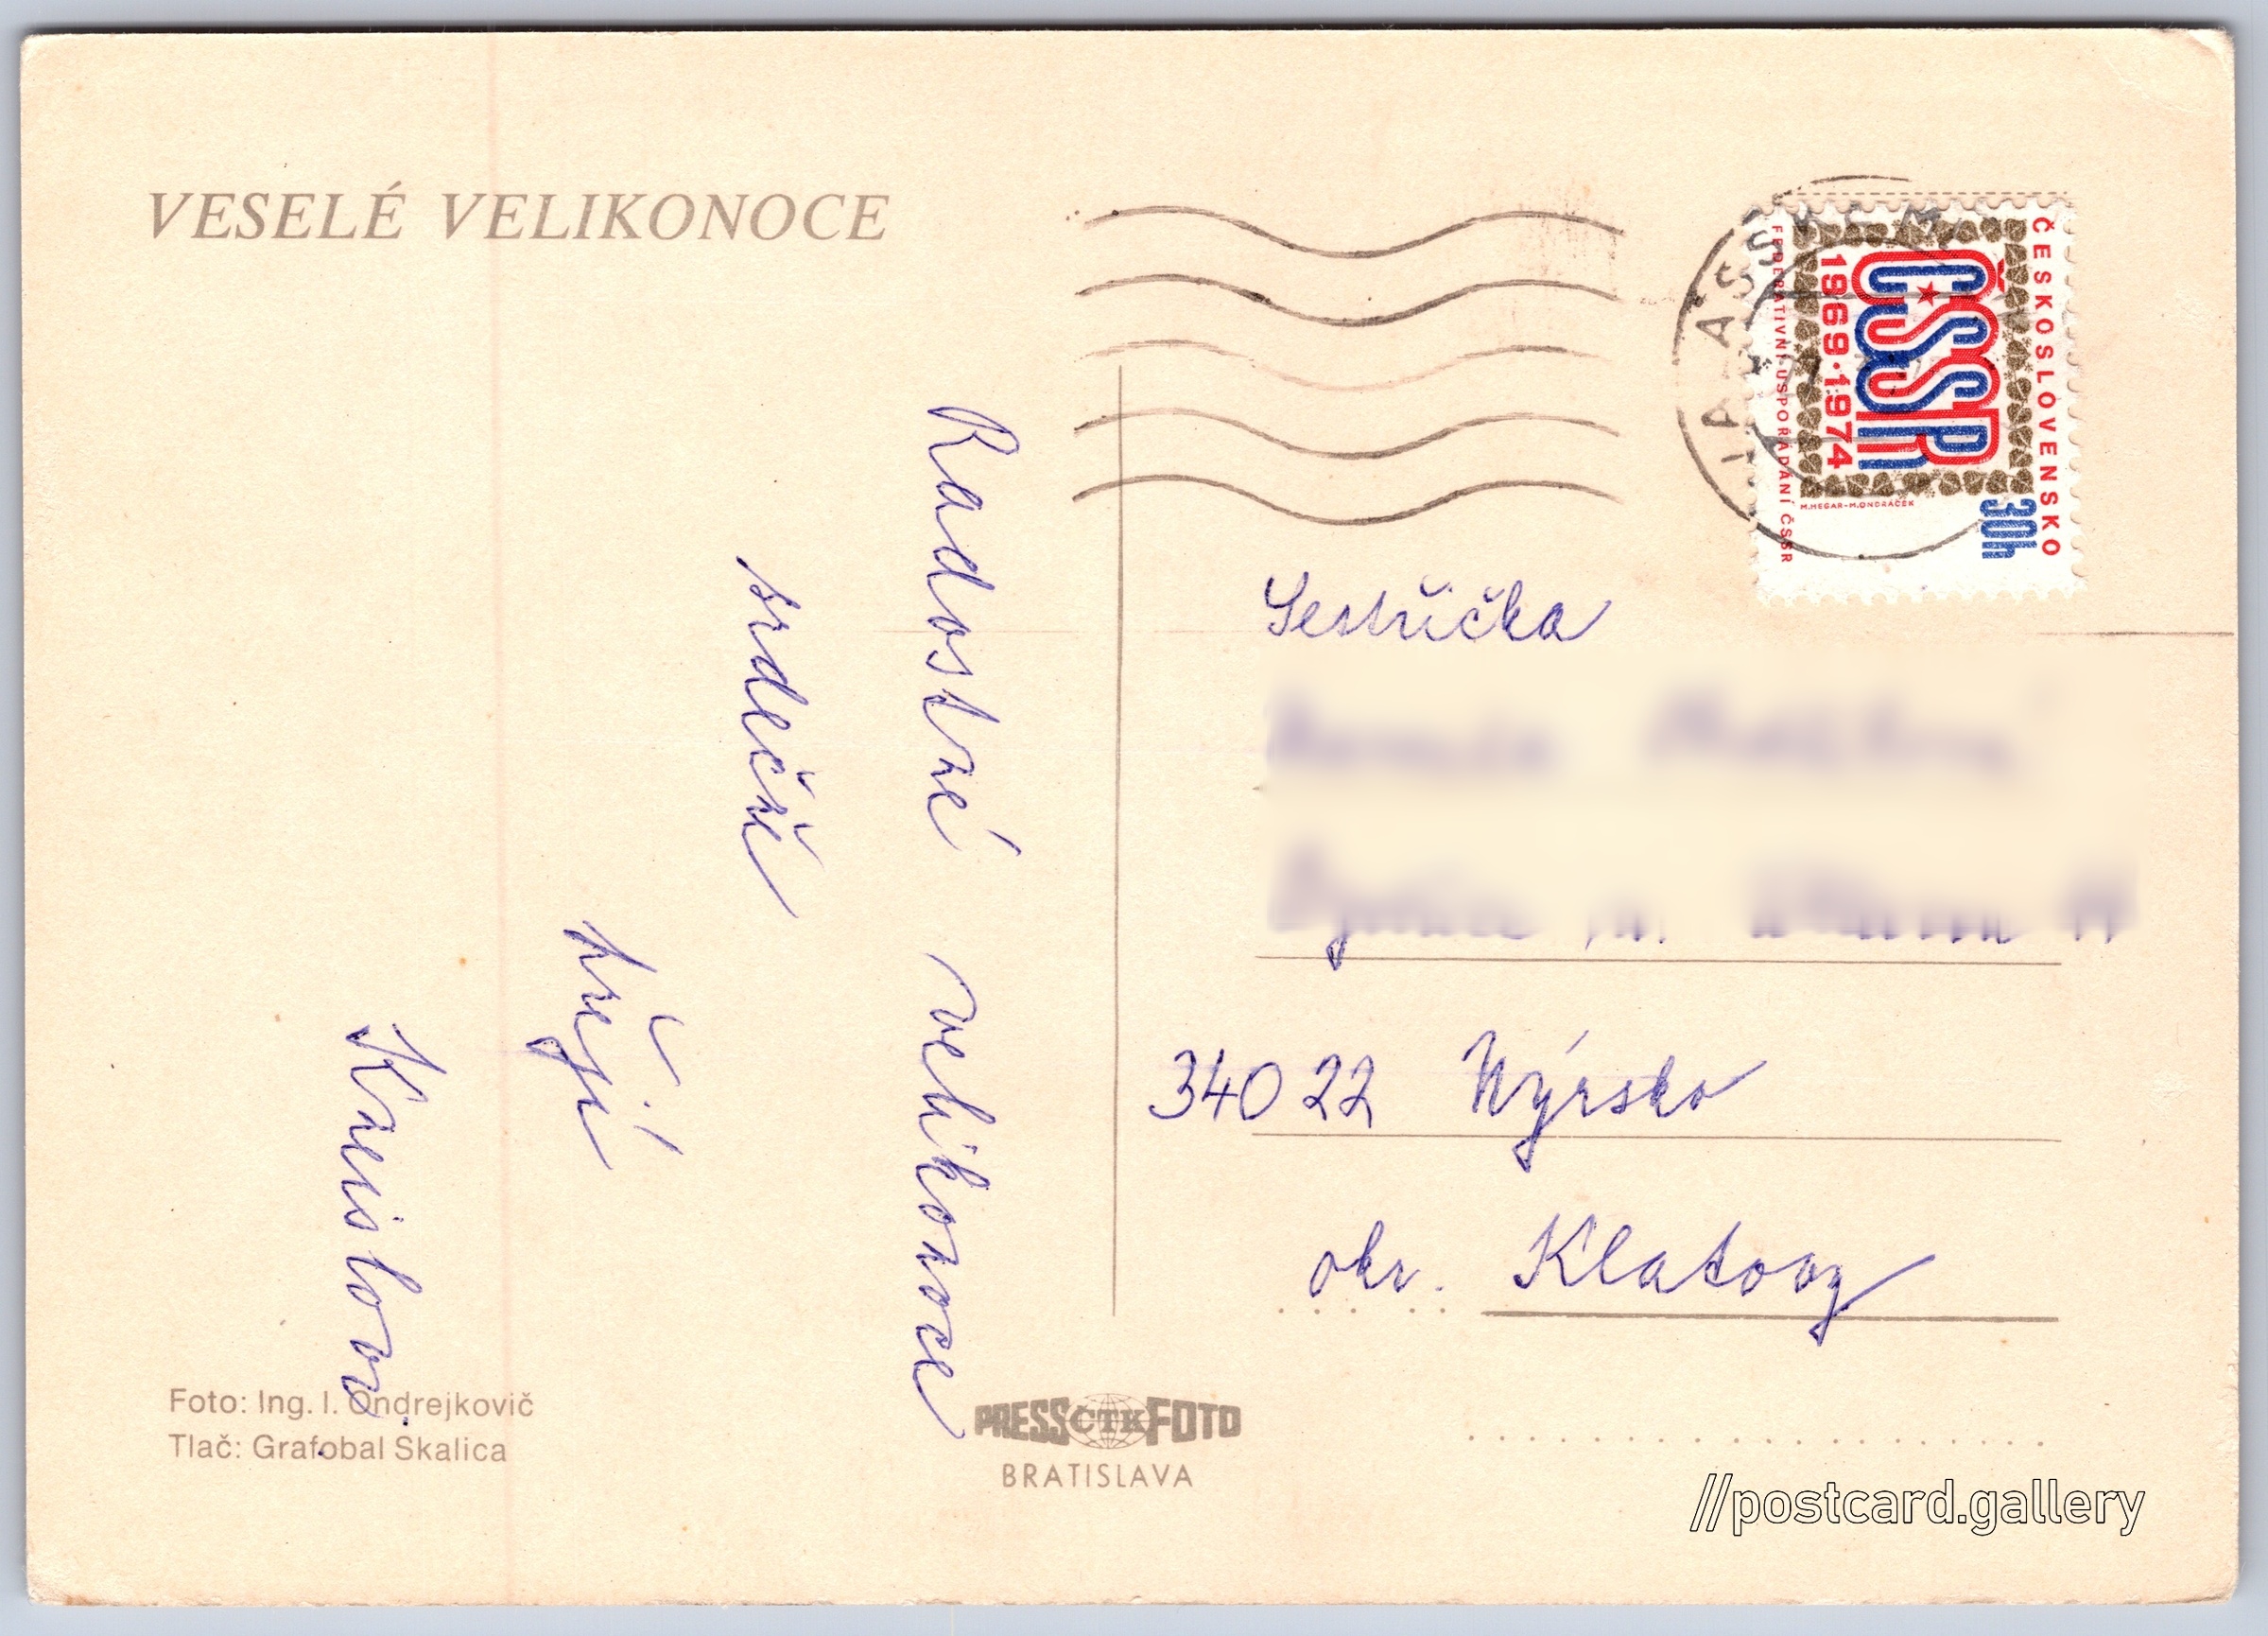 VESELÉ VELIKONOCE
Radostné velikonoce
srdečně
přejí
ČESKOSLOVENSKO
30h
ČSSR
1969·1974
FEDERATIVNÍ USPOŘÁDÁNÍ ČSSR
M.HEGAR-M.ONDRÁČEK
Sestřička
34022 Nýrsko
okr. Klatovy
Foto: Ing. I. Ondrejkovič
Tlač: Grafobal Skalica
PRESS ČTK FOTO
BRATISLAVA
//postcard.gallery